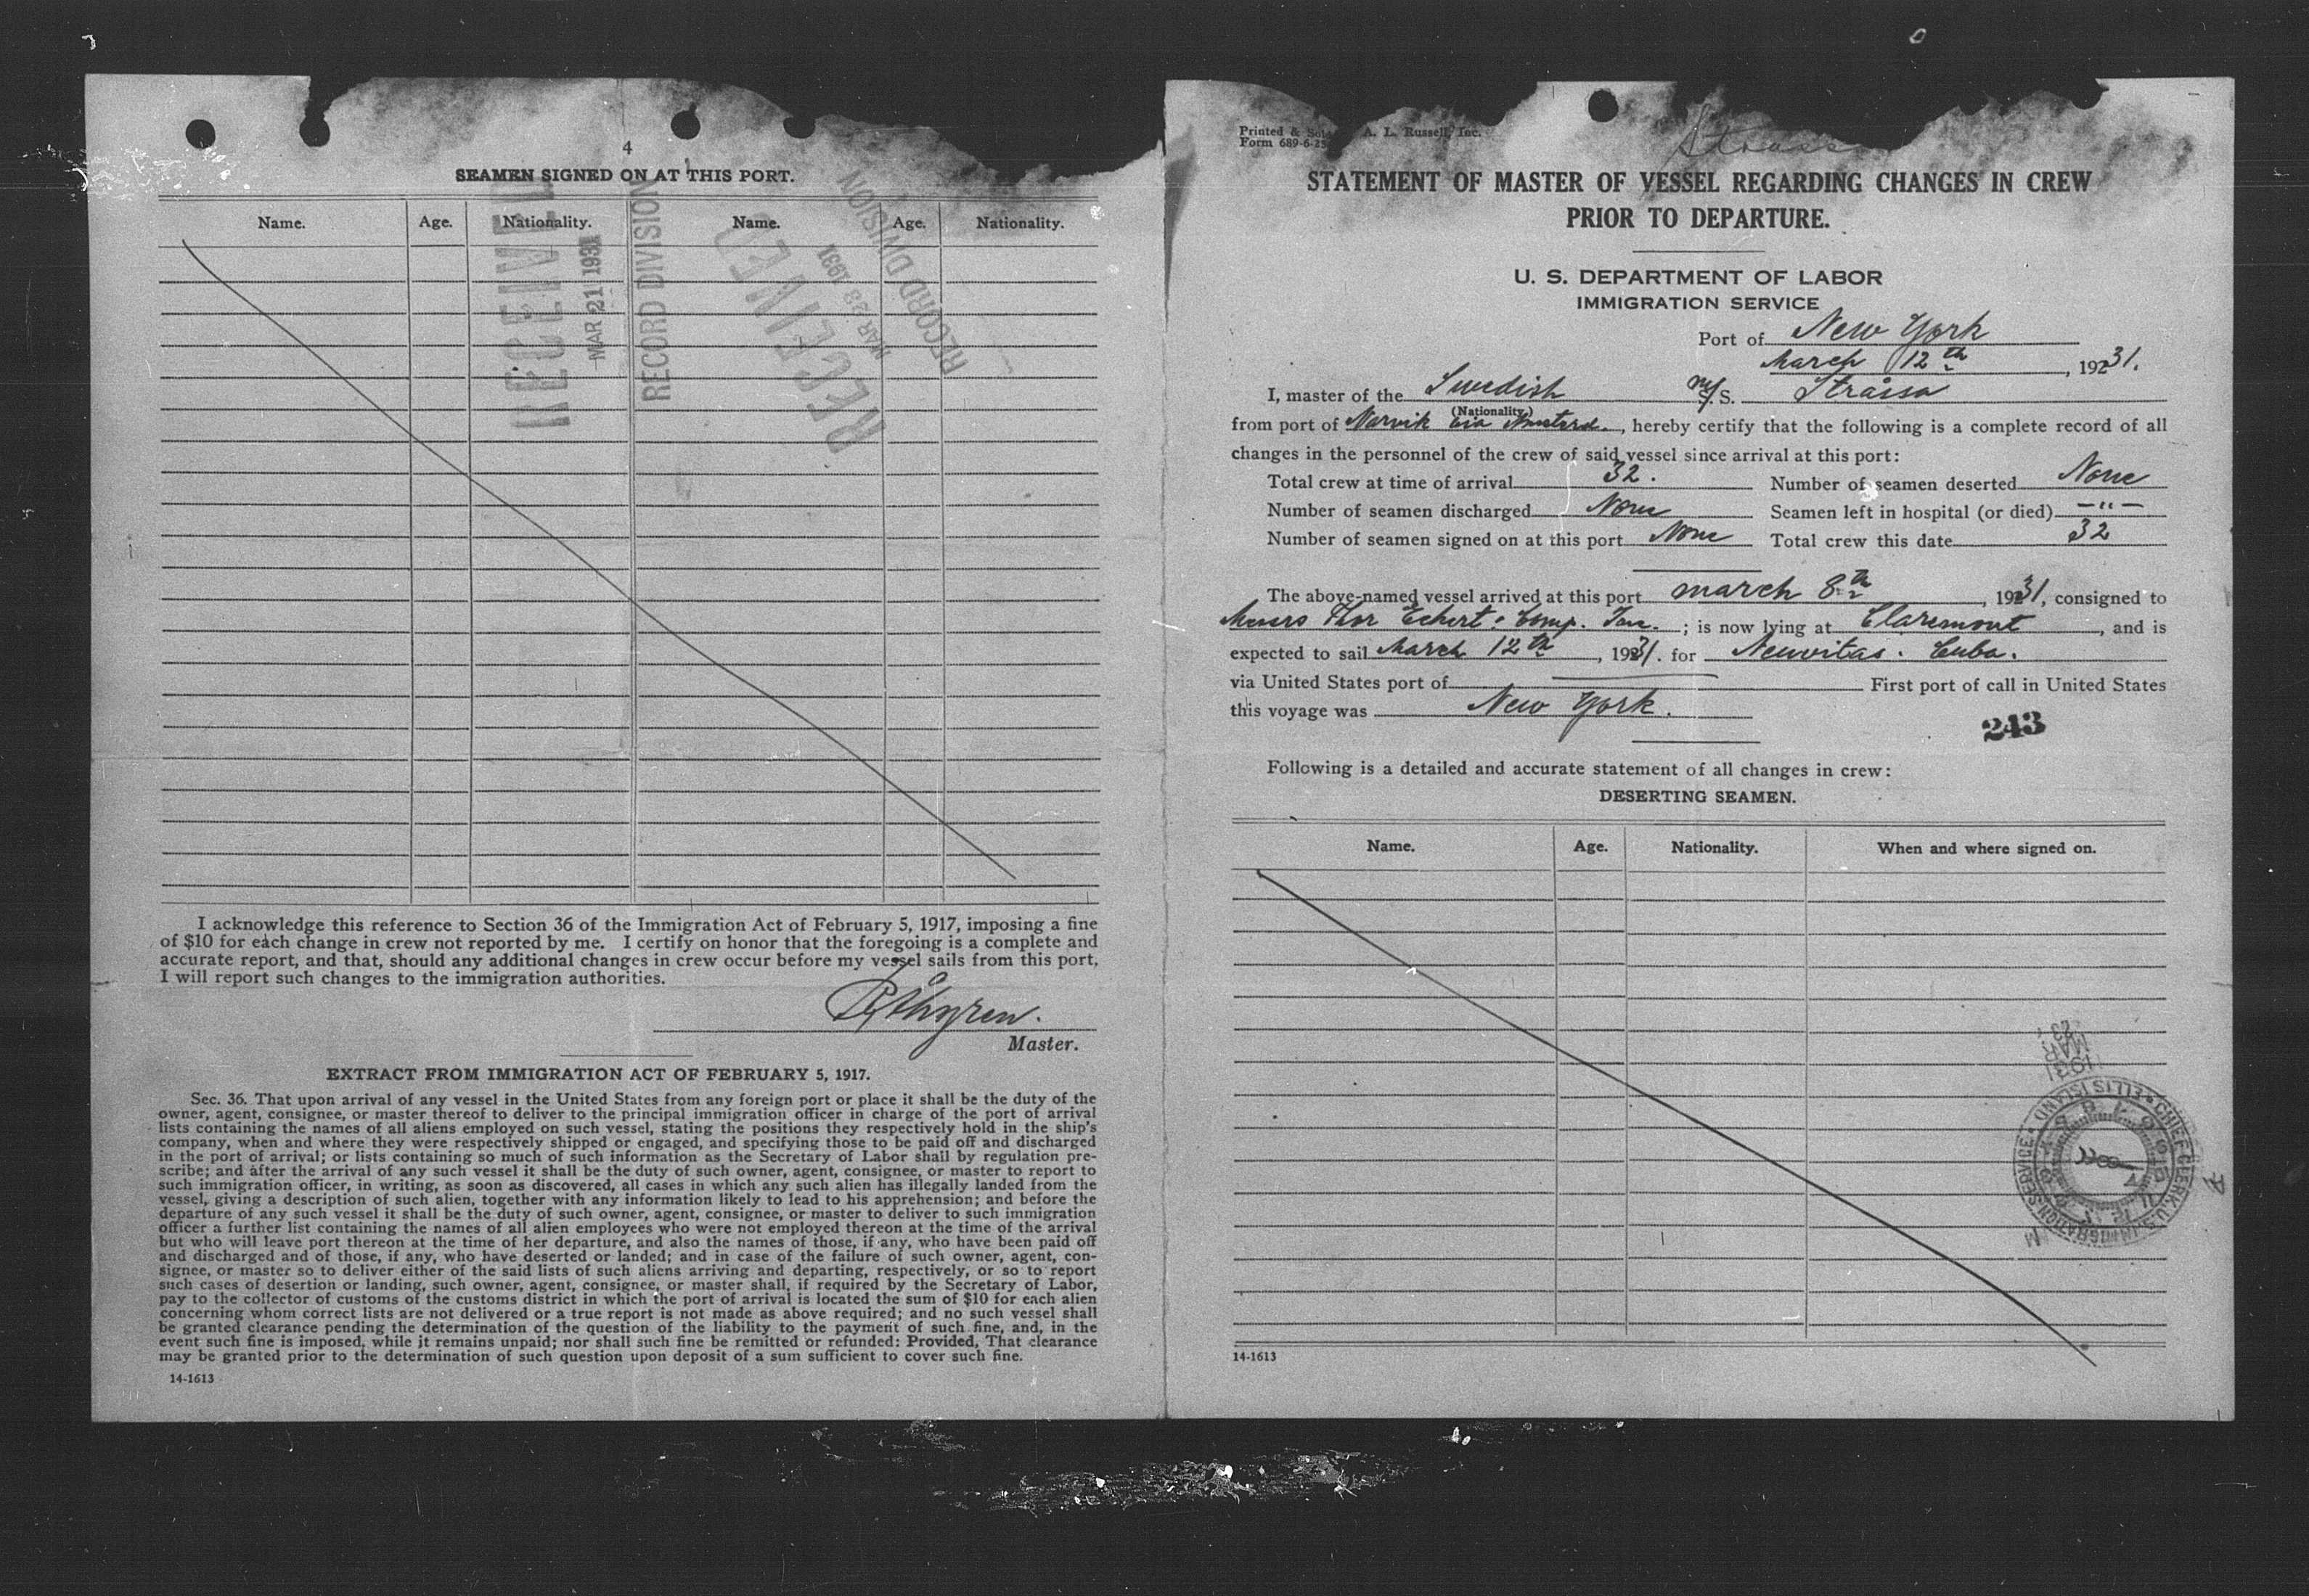 4
SEAMEN SIGNED ON AT THIS PORT.
Name. Age. Nationality. Name. Age. Nationality.
RECEIVED
MAR 21 1931
RECORD DIVISION
RECEIVED
MAR 23 1931
RECORD DIVISION
I acknowledge this reference to Section 36 of the Immigration Act of February 5, 1917, imposing a fine
of $10 for each change in crew not reported by me. I certify on honor that the foregoing is a complete and
accurate report, and that, should any additional changes in crew occur before my vessel sails from this port,
I will report such changes to the immigration authorities.
Master.
EXTRACT FROM IMMIGRATION ACT OF FEBRUARY 5, 1917.
Sec. 36. That upon arrival of any vessel in the United States from any foreign port or place it shall be the duty of the
owner, agent, consignee, or master thereof to deliver to the principal immigration officer in charge of the port of arrival
lists containing the names of all aliens employed on such vessel, stating the positions they respectively hold in the ship's
company, when and where they were respectively shipped or engaged, and specifying those to be paid off and discharged
in the port of arrival; or lists containing so much of such information as the Secretary of Labor shall by regulation pre-
scribe; and after the arrival of any such vessel it shall be the duty of such owner, agent, consignee, or master to report to
such immigration officer, in writing, as soon as discovered, all cases in which any such alien has illegally landed from the
vessel, giving a description of such alien, together with any information likely to lead to his apprehension; and before the
departure of any such vessel it shall be the duty of such owner, agent, consignee, or master to deliver to such immigration
officer a further list containing the names of all alien employees who were not employed thereon at the time of the arrival
but who will leave port thereon at the time of her departure, and also the names of those, if any, who have been paid off
and discharged and of those, if any, who have deserted or landed; and in case of the failure of such owner, agent, con-
signee, or master so to deliver either of the said lists of such aliens arriving and departing, respectively, or so to report
such cases of desertion or landing, such owner, agent, consignee, or master shall, if required by the Secretary of Labor,
pay to the collector of customs of the customs district in which the port of arrival is located the sum of $10 for each alien
concerning whom correct lists are not delivered or a true report is not made as above required; and no such vessel shall
be granted clearance pending the determination of the question of the liability to the payment of such fine, and, in the
event such fine is imposed, while it remains unpaid; nor shall such fine be remitted or refunded: Provided, That clearance
may be granted prior to the determination of such question upon deposit of a sum sufficient to cover such fine.
14-1613
Printed & Sol A. L. Russell, Inc.
Form 689-6-25
STATEMENT OF MASTER OF VESSEL REGARDING CHANGES IN CREW
PRIOR TO DEPARTURE.
U. S. DEPARTMENT OF LABOR
IMMIGRATION SERVICE
Port of New York
March 12th, 1931.
I, master of the Swedish M/S. Stråssa
(Nationality)
from port of Narvik via Amsterd., hereby certify that the following is a complete record of all
changes in the personnel of the crew of said vessel since arrival at this port:
Total crew at time of arrival 32. Number of seamen deserted None
Number of seamen discharged None Seamen left in hospital (or died) —"—
Number of seamen signed on at this port None Total crew this date 32
The above-named vessel arrived at this port march 8th, 1931, consigned to
Messrs Thor Eckert & Comp. Inc.; is now lying at Claremont, and is
expected to sail March 12th, 1931. for Neuvitas. Cuba.
via United States port of First port of call in United States
this voyage was New York.
243
Following is a detailed and accurate statement of all changes in crew:
DESERTING SEAMEN.
Name. Age. Nationality. When and where signed on.
1931
MAR
CHIEF CLERK, U.S. IMMIGRATION SERVICE ELLIS ISLAND
14-1613